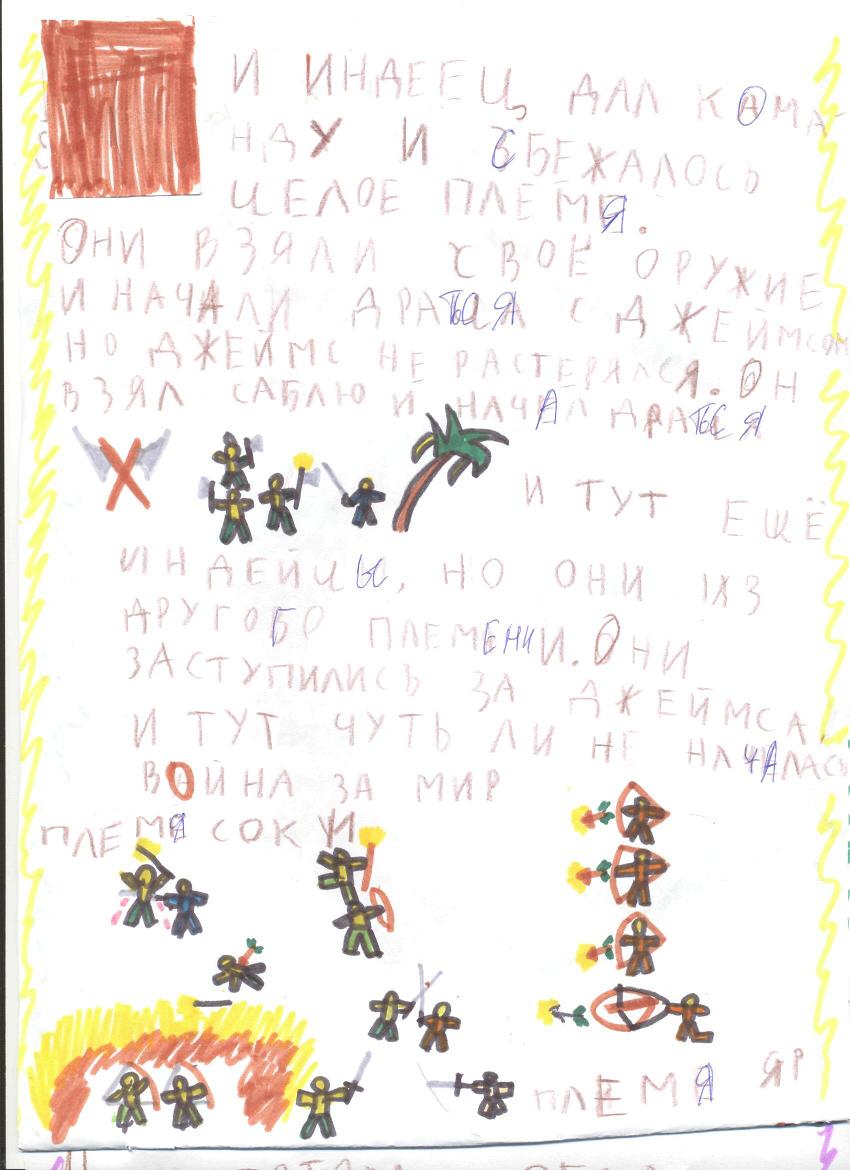 И ИНДЕЕЦ ДАЛ КОМА-
НДУ И СБЕЖАЛОСЬ
ЦЕЛОЕ ПЛЕМЯ.
ОНИ ВЗЯЛИ СВОЁ ОРУЖИЕ
И НАЧАЛИ ДРАТЬСЯ С ДЖЕЙМСОМ
НО ДЖЕЙМС НЕ РАСТЕРЯЛСЯ. ОН
ВЗЯЛ САБЛЮ И НАЧАЛ ДРАТЬСЯ
И ТУТ ЕЩЁ
ИНДЕЙЦЫ, НО ОНИ ИЗ
ДРУГОГО ПЛЕМЕНИ. ОНИ
ЗАСТУПИЛИСЬ ЗА ДЖЕЙМСА,
И ТУТ ЧУТЬ ЛИ НЕ НАЧАЛАСЬ
ВОЙНА ЗА МИР
ПЛЕМЯ СОКУИ
ПЛЕМЯ ЯР